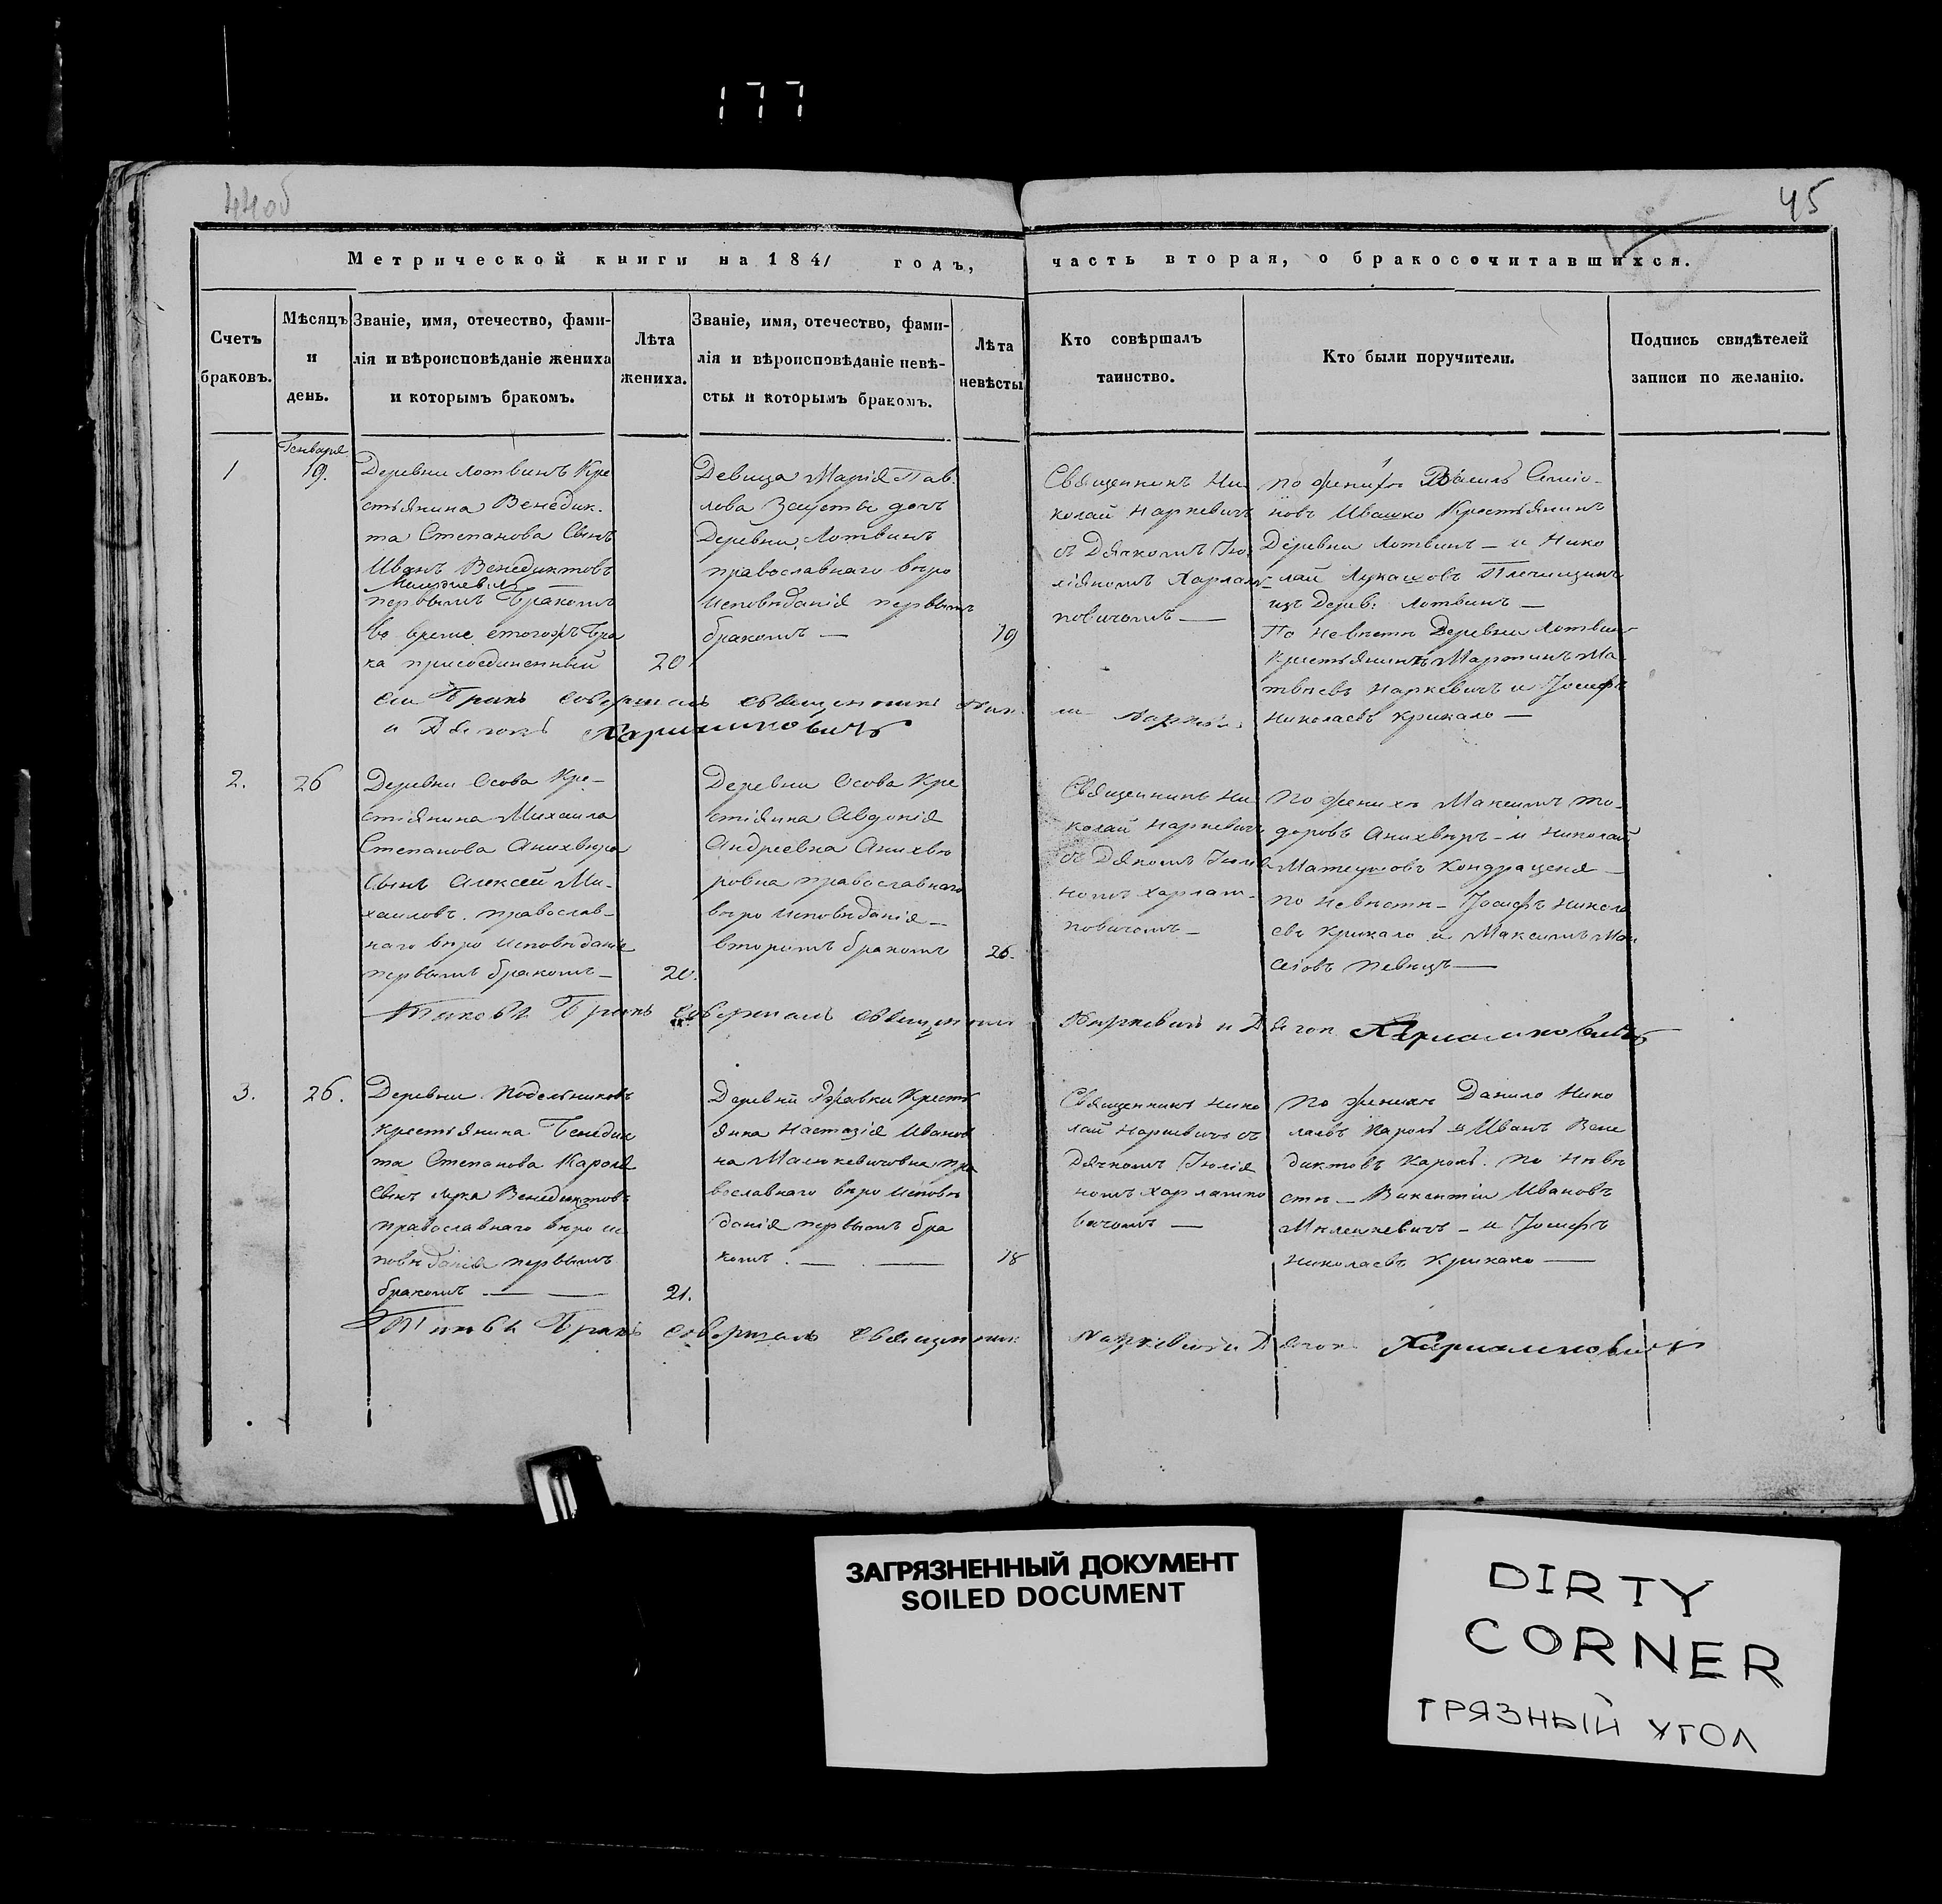 177
44об
45
Метрической книги на 1841 годъ, часть вторая, о бракосочитавшихся.
Счетъ браковъ.
Мѣсяцъ и день.
Званіе, имя, отечество, фами-
лія и вѣроисповѣданіе жениха
и которымъ бракомъ.
Лѣта
жениха.
Званіе, имя, отечество, фами-
лія и вѣроисповѣданіе невѣ-
сты и которымъ бракомъ.
Лѣта
невѣсты
Кто совѣршалъ
таинство.
Кто были поручители.
Подпись свидѣтелей
записи по желанію.
1
Генваря
19.
Деревни Лотвинъ Кре
стьянина Венедик-
та Степанова Сынъ
Иванъ Венедиктовъ
первымъ Бракомъ
во время етогожъ Бра
ка присоединенный
20
Девица Марія Пав-
лова дочь
Деревни Лотвинъ
православнаго вѣро
исповѣданія первымъ
бракомъ —
19
Священникъ Ни
колай Наркевичъ
съ Дячкомъ Ію-
ліяномъ Харлам-
повичомъ —
по женихѣ Василь Симіо-
новъ Ивашко Крестьянинъ
Деревни Лотвинъ — и Нико
лай Лукашовъ
изъ Дерев: Лотвинъ —
По невѣстѣ Деревни Лотвинъ
Крестьянинъ Мартинъ Ма-
твѣевъ Наркевичъ и Іосифъ
Николаевъ Крикало —
сей Бракъ совершалъ священникъ
и Дячокъ Харламповичъ
2.
26
Деревни Осова Кре-
стіянина Михаила
Степанова Анихвѣра
Сынъ Алексей Ми-
хаиловъ православ-
наго вѣро исповѣданія
первымъ бракомъ —
20.
Деревни Осова Кре
стіянка Авдокія
Андреевна Анихвѣ
ровна православнаго
вѣро исповѣданія —
вторымъ бракомъ
26.
Священникъ Ни
колай Наркевичъ
съ Дякомъ Іюлія
номъ Харлам-
повичомъ —
по женихѣ Максимъ То-
доровъ Анихвѣръ — и Николай
Матеушовъ Кондраценя —
по невѣстѣ — Іосифъ Никола
евъ Крикало и Максимъ Мои
сеіовъ Певнъ —
Таковъ Бракъ совершалъ священникъ Наркевичъ и Дячок Харламповичъ
3.
26.
Деревни Подельниковъ
крестьянина Бенедик
та Степанова Кароля
Сынъ Лука Венедиктовъ
православнаго вѣро ис
повѣданія первымъ
бракомъ — —
21.
Деревни Крестя
янка Настазія Иванов
на Малюкевичовна пра
вославнаго вѣро исповѣ
данія первымъ бра
комъ. — —
18
Священникъ Нико
лай Наркевичъ съ
Дячкомъ Іюлія
номъ Харлампо
вичомъ —
по женихѣ Данило Нико
лаевъ Кароль и Иванъ Вене
диктовъ Кароль. по невѣ
стѣ — Викентій Ивановъ
— и Іосифъ
Николаевъ Крикало —
Таковъ Бракъ совершалъ священник Наркевичъ и Дячок Харламповичъ
ЗАГРЯЗНЕННЫЙ ДОКУМЕНТ
SOILED DOCUMENT
DIRTY
CORNER
ГРЯЗНЫЙ УГОЛ